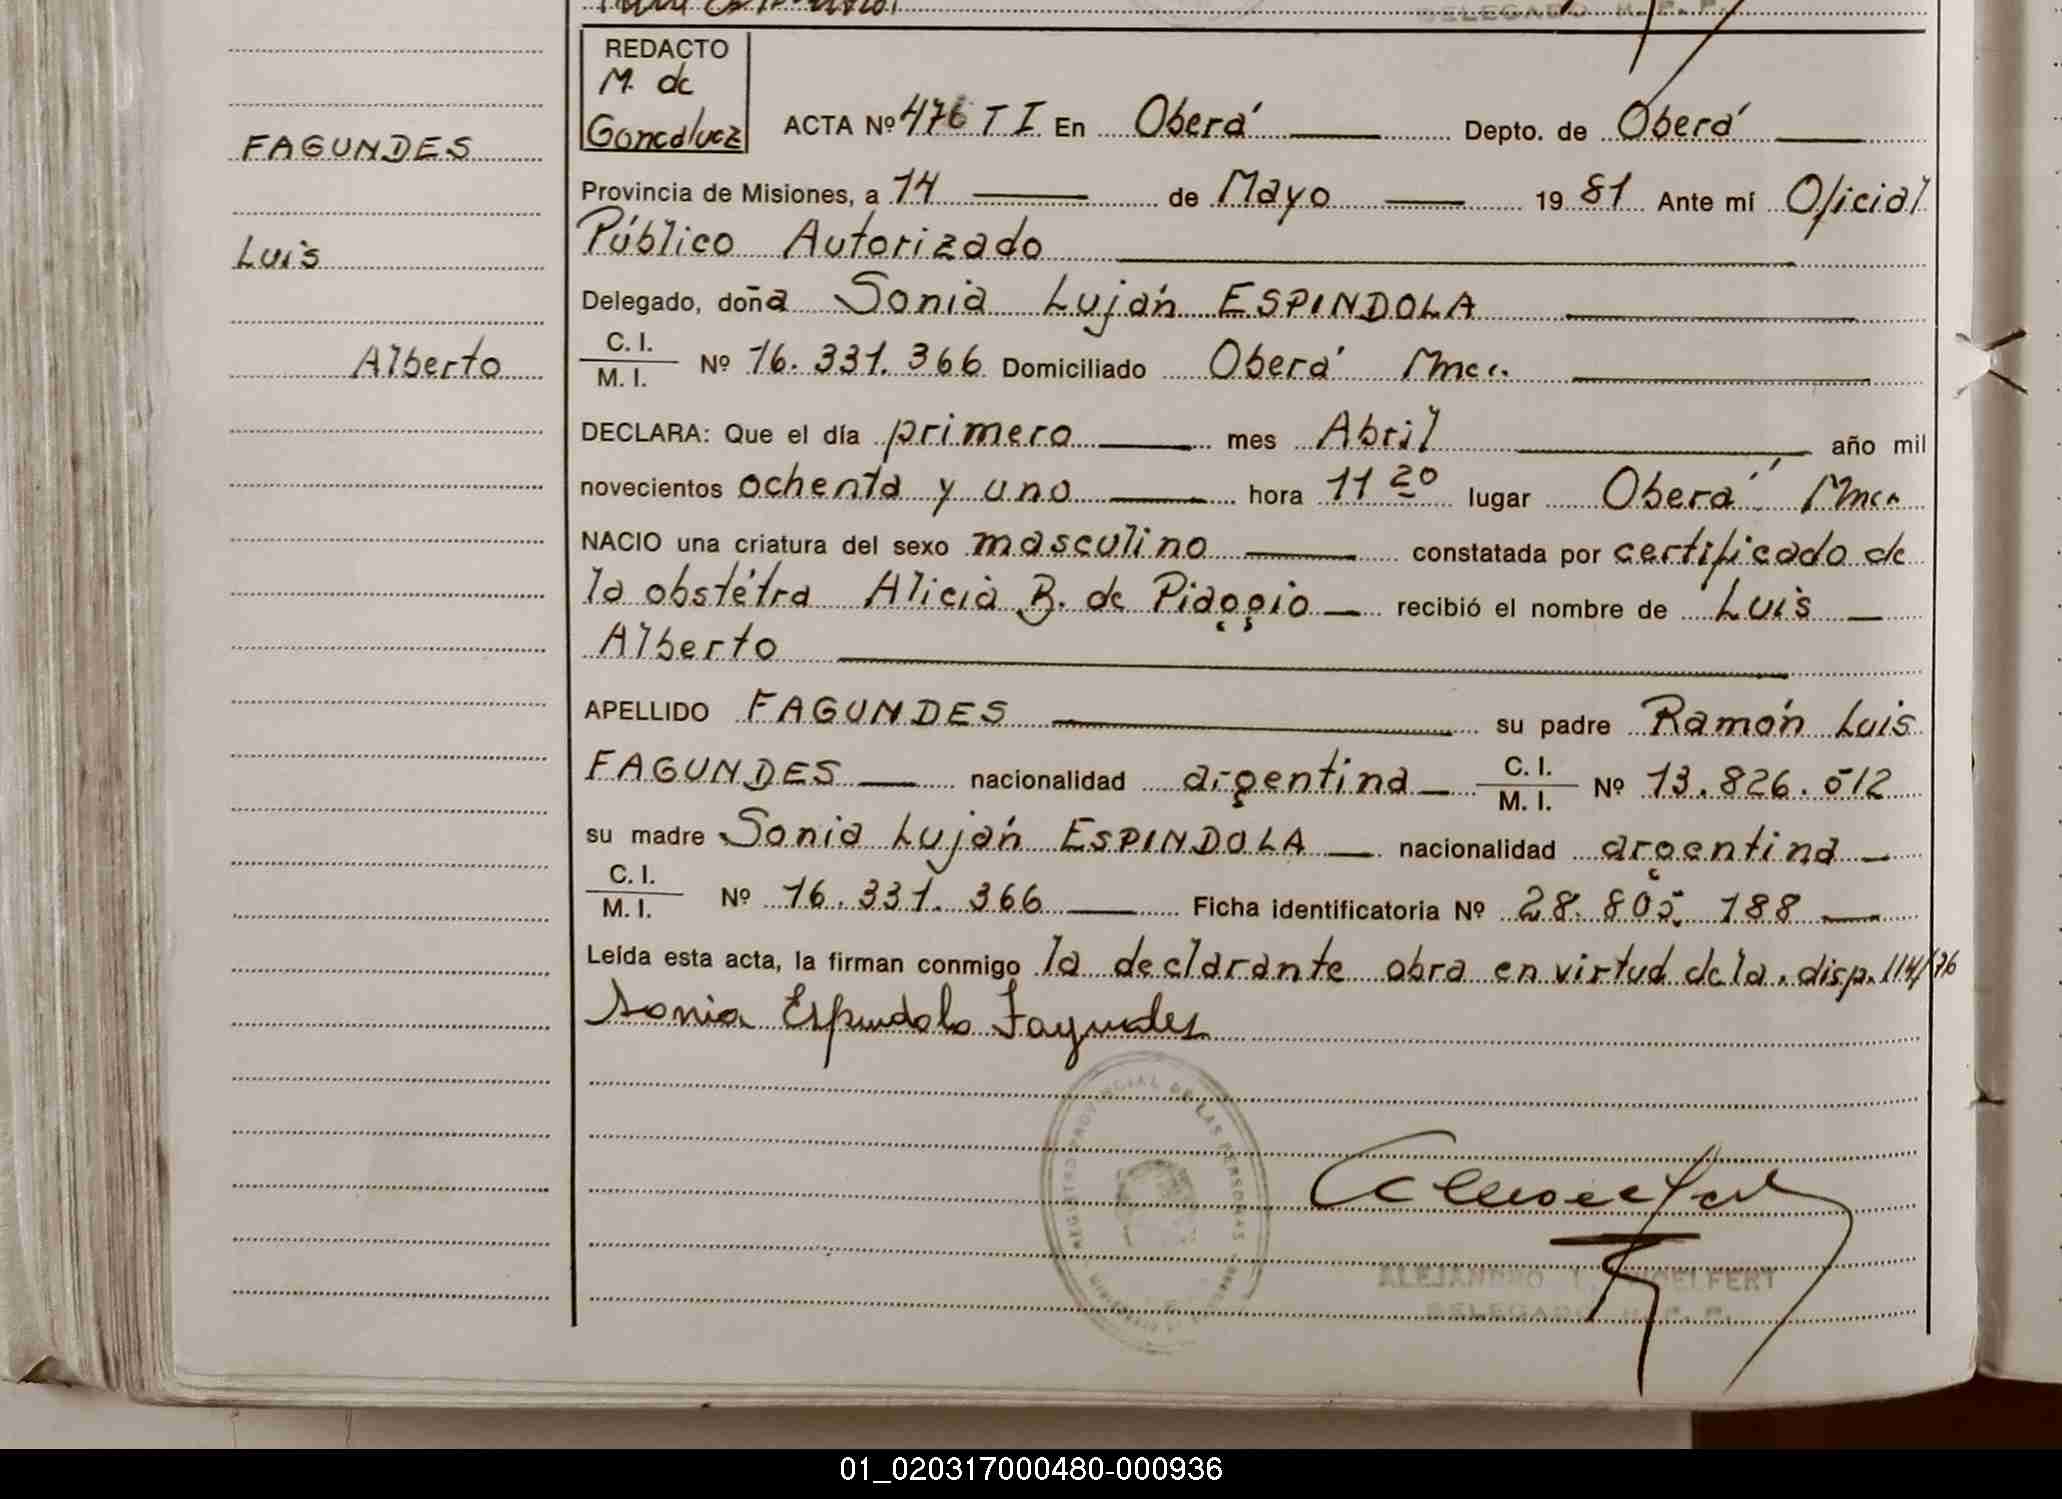 DELEGADO R. P. P.
REDACTO
M. de
Goncalvez
ACTA Nº 476 T I En Oberá Depto. de Oberá
FAGUNDES
Provincia de Misiones, a 14 de Mayo 1981 Ante mí Oficial
Público Autorizado
Luis
Delegado, doña Sonia Luján ESPINDOLA
C. I.
M. I. Nº 16.331.366 Domiciliado Oberá Mnes.
Alberto
DECLARA: Que el día primero mes Abril año mil
novecientos ochenta y uno hora 11 20 lugar Oberá, Mnes
NACIO una criatura del sexo masculino constatada por certificado de
la obstétra Alicia B. de Piaggio recibió el nombre de Luis
Alberto
APELLIDO FAGUNDES su padre Ramón Luis
FAGUNDES nacionalidad argentina C. I.
M. I. Nº 13.826.512
su madre Sonia Luján ESPINDOLA nacionalidad argentina
C. I.
M. I. Nº 16.331.366 Ficha identificatoria Nº 28.805.188
Leída esta acta, la firman conmigo la declarante obra en virtud de la disp. 114/76
Sonia Espindola Fagundes
REGISTRO PROVINCIAL DE LAS PERSONAS
ALEJANDRO
DELEGADO R. P. P.
01_020317000480-000936